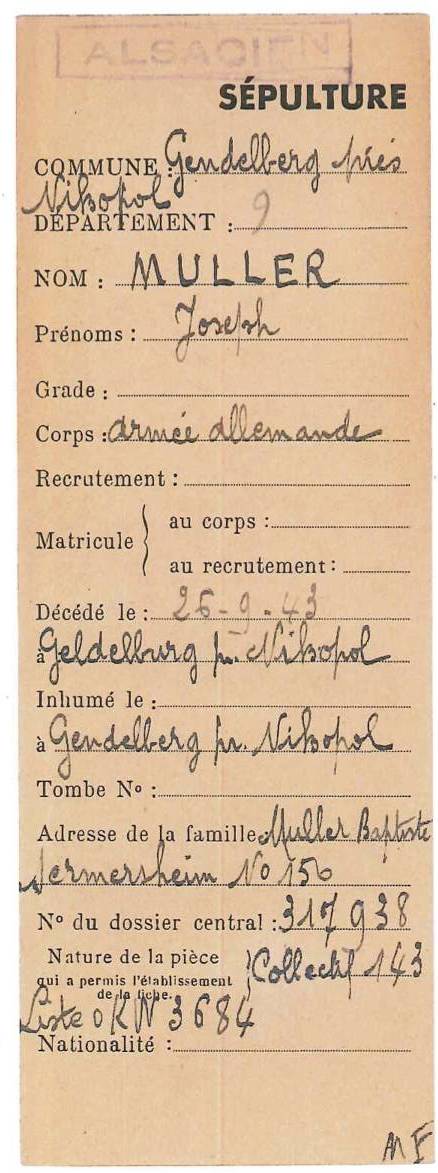 ALSACIEN
SÉPULTURE
COMMUNE : Gendelberg près
Nikopol
DÉPARTEMENT : 9
NOM : MULLER
Prénoms : Joseph
Grade :
Corps : armée allemande
Recrutement :
Matricule { au corps :
au recrutement :
Décédé le : 26-9-43
à Geldelburg pr. Nikopol
Inhumé le :
à Gendelberg pr. Nikopol
Tombe No :
Adresse de la famille Muller Baptiste
Nermersheim No 156
No du dossier central : 317 938
Nature de la pièce
qui a permis l'établissement
de la fiche. } Collectif 143
Liste OKW 3684
Nationalité :
MF